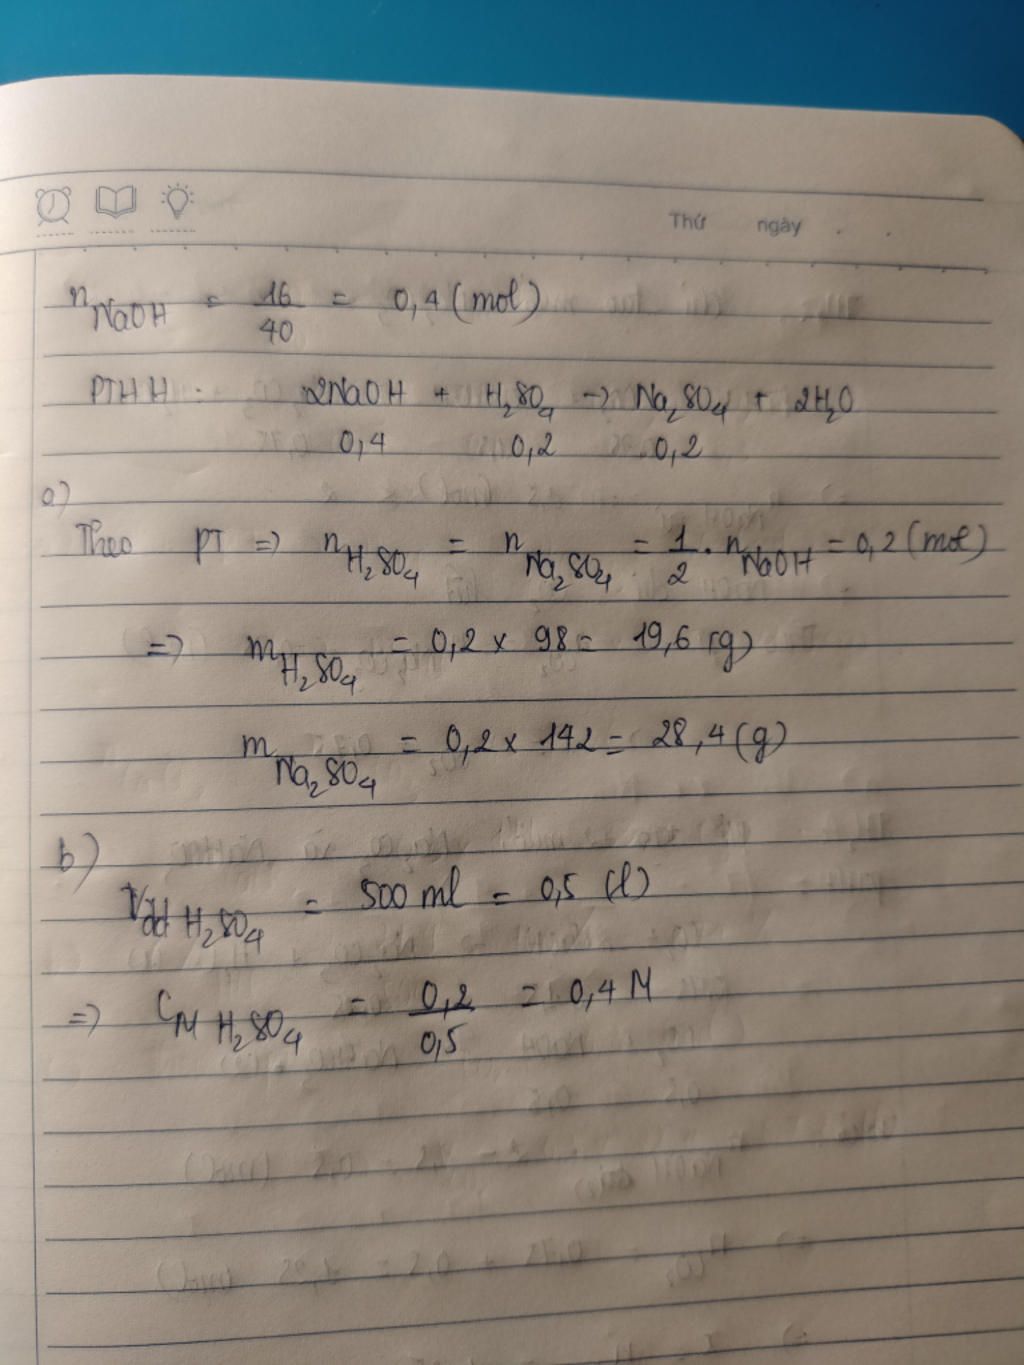 Thứ ngày . .
n NaOH = 16/40 = 0,4 (mol)
PTHH: 2NaOH + H₂SO₄ → Na₂SO₄ + 2H₂O
0,4 0,2 0,2
a)
Theo PT => n H₂SO₄ = n Na₂SO₄ = 1/2 . n NaOH = 0,2 (mol)
=> m H₂SO₄ = 0,2 x 98 = 19,6 (g)
m Na₂SO₄ = 0,2 x 142 = 28,4 (g)
b)
Vdd H₂SO₄ = 500 ml = 0,5 (l)
=> CM H₂SO₄ = 0,2/0,5 = 0,4 M